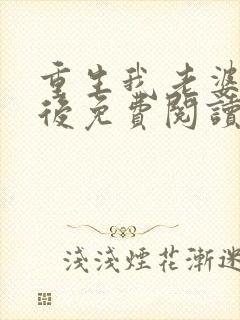 重生我老婆
後免費閱讀
淺淺煙花漸迷